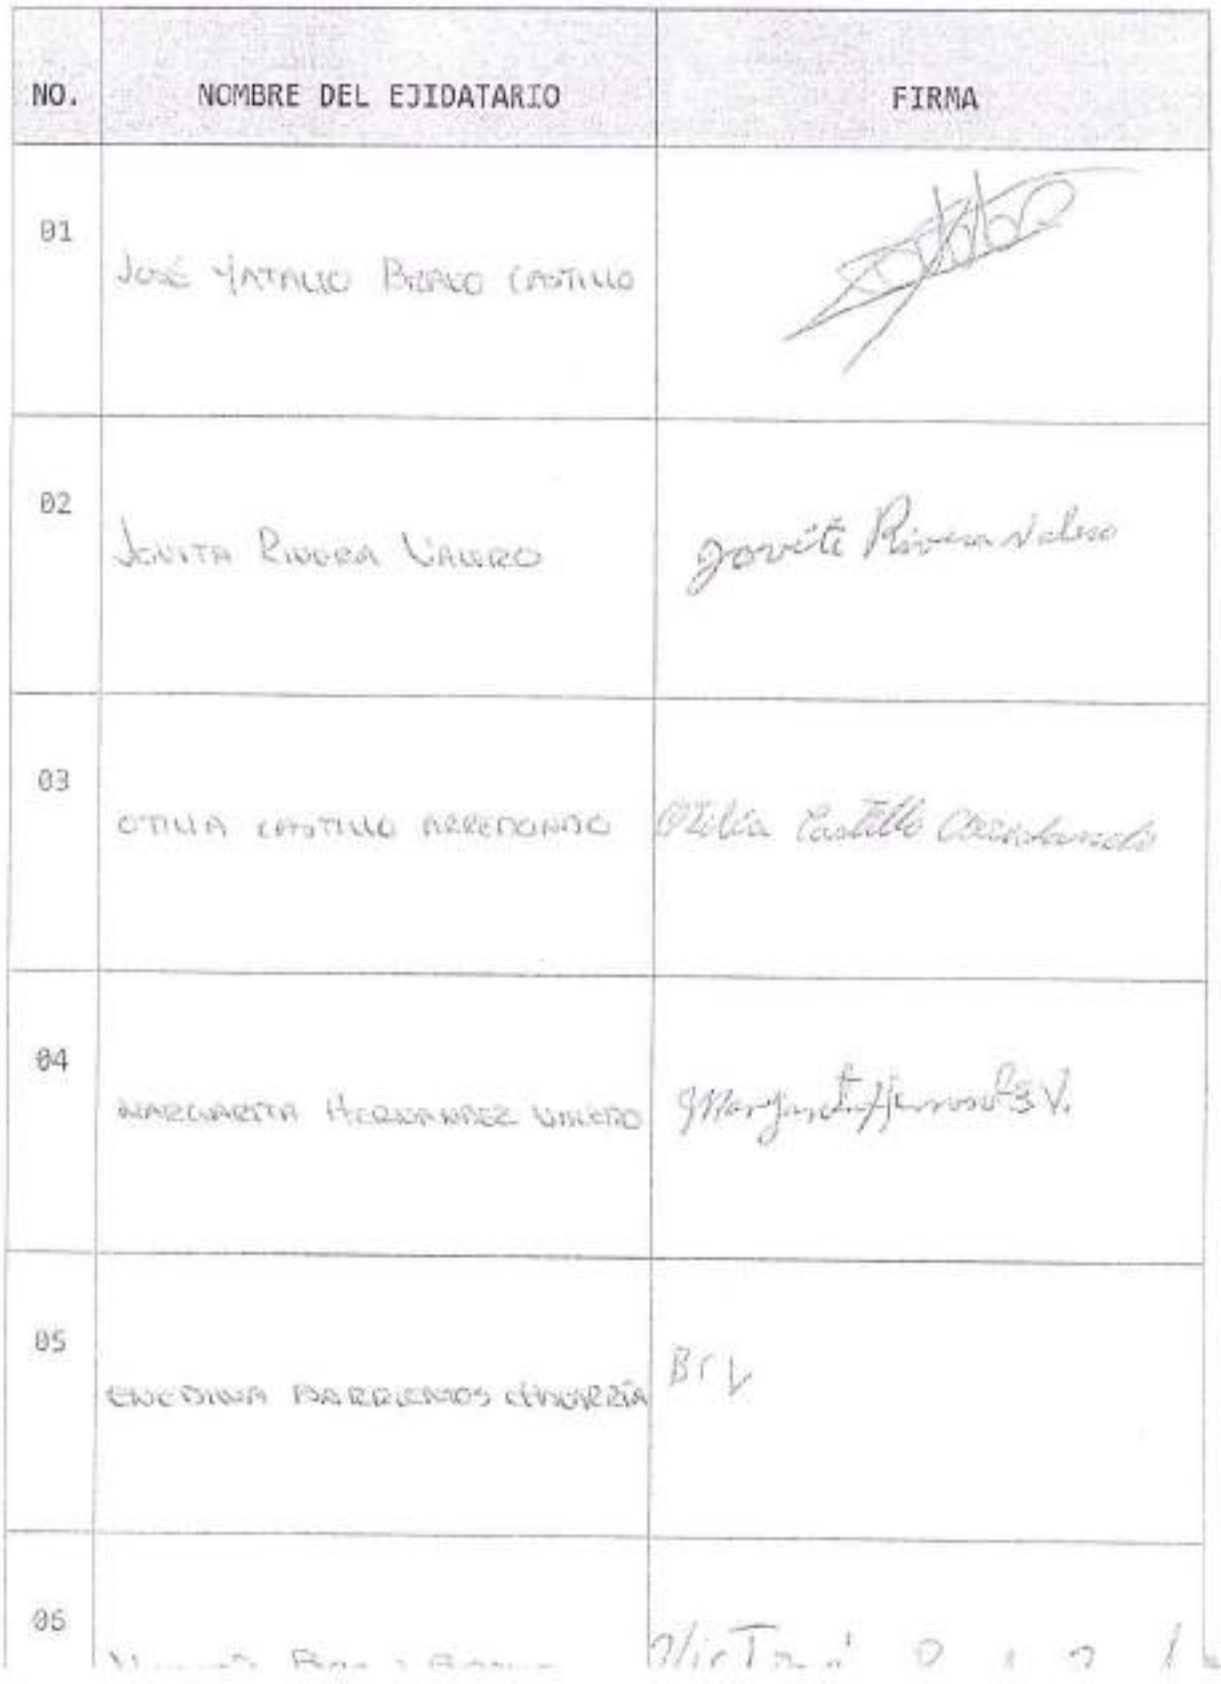 NO. NOMBRE DEL EJIDATARIO FIRMA
01
JOSÉ NATALIO BRAVO CASTILLO
02
JOVITA RIVERA VALERO Jovita Rivera Valero
03
OTILIA CASTILLO ARREDONDO Otilia Castillo Arredondo
04
MARGARITA HERNANDEZ VALERO
05
ENEDINA BARRIENTOS
06